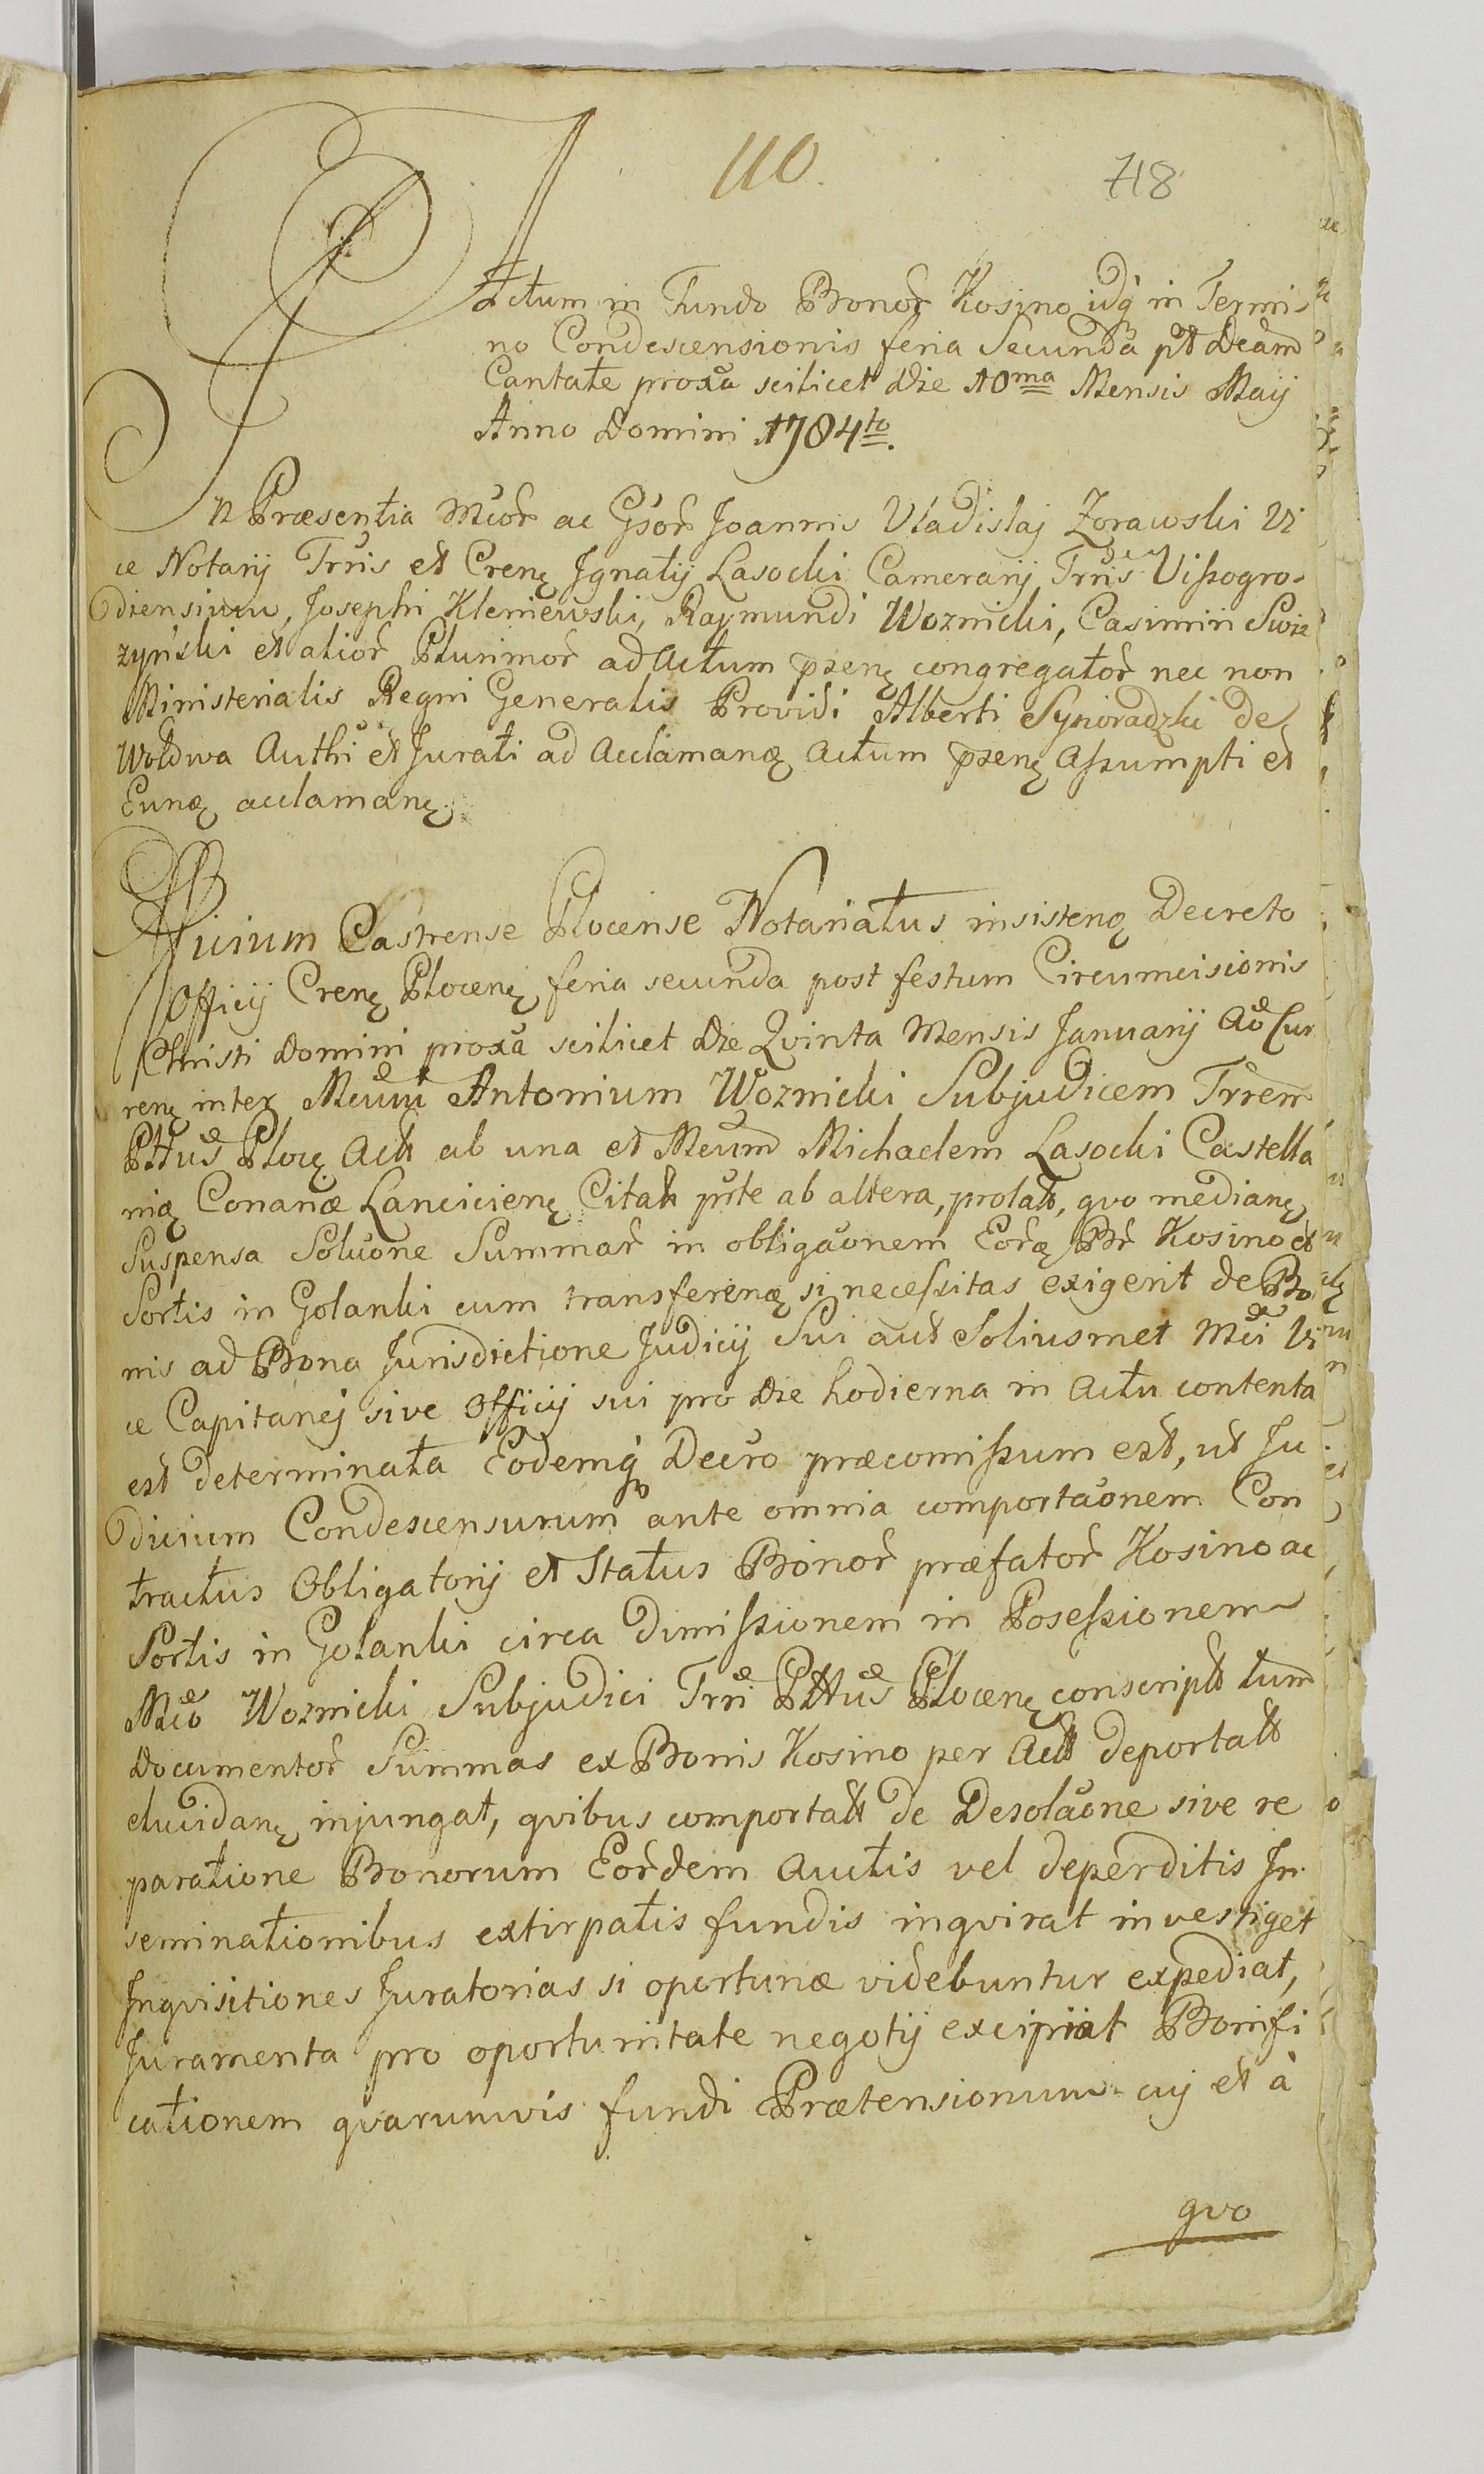 110.
718
Actum in Fundo Bonor Kosino idq in Termi-
no Condescensionis feria Secunda pt Dcam
Cantate proxa scilicet Die 10ma Mensis Maij
Anno Domini 1784to.
In Præsentia Mcor ac Gsor Joannis Vladislaj Zorawski Vi
ce Notarij Trris et Crenę Jgnatij Lasocki Camerarij Trris Vissogro-
diensium, Josephi Kleniewski, Raymundi Woznicki, Casimiri Swie
zynski et alior Plurimor ad Actum psenę congregator nec non
Ministerialis Regni Generalis Providi Alberti Synoradzki de
Woldwa Authi et Jurati ad Acclamaną Actum psenę Assumpti et
Eunq acclamanę.
Officium Castrense Plocense Notariatus insistenę Decreto
Officij Crenę Plocenę feria secunda post festum Circumcisionis
Christi Domini proxa scilicet Die Qvinta Mensis Januarij Ao Cur
renę inter Mcum Antonium Woznicki Subjudicem Trrem
Pttus Plocę Actt ab una et Mcum Michaelem Lasocki Castella
nią Conanæ Lancicienę Citatt pte ab altera, prolatt, qvo medianę
Suspensa Soluone Summar in obligaonem Eorą Br Kosino et
Sortis in Golanki cum transferenę si necessitas exigerit de Bo
nis ad Bona Jurisdictione Judicij Sui aut Soliusmet Mci Vi
ce Capitanej sive Officij sui pro Die hodierna in Actu contenta
est determinata Eodemq Decro præcomissum est, ut Ju
dicium Condescensurum ante omnia comportaonem Con
tractus Obligatorij et Status Bonor præfator Kosino ac
Sortis in Golanki circa dimissionem in Posessionem
Mco Woznicki Subjudici Trri Pttus Plocenę conscriptt tum
Documentor Summas ex Bonis Kosino per Actt deportatt
elucidanę injungat, qvibus comportatt de Desolaone sive re
paratione Bonorum Eordem Auctis vel deperditis Jn
seminationibus extirpatis fundis inqvirat investiget
Jnqvisitiones Juratorias si oportunæ videbuntur expediat,
Juramenta pro oportunitate negotij excipiat Bonifi
cationem qvarumvis fundi Prætensionum cuj et à
qvo